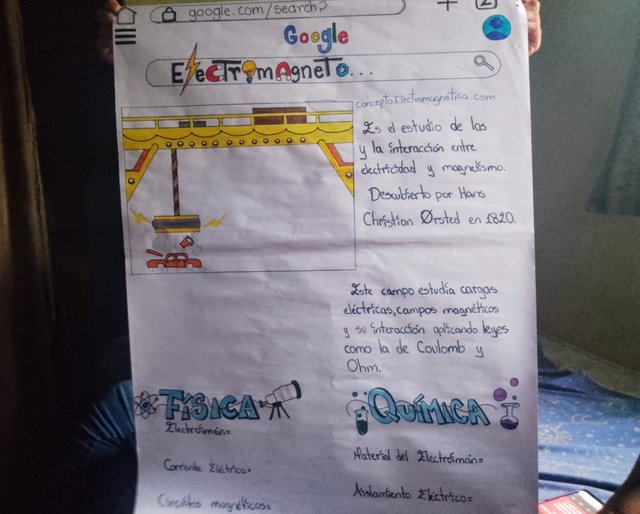 google.com/search?
2
Google
Electromagneto...
concepto.Electromagnética.com
Es el estudio de las
y la interacción entre
electricidad y magnetismo.
Descubierto por Hans
Christian Ørsted en 1820.
Este campo estudia cargas
eléctricas, campos magnéticos
y su interacción aplicando leyes
como la de Coulomb y
Ohm.
FÍSICA
Electroimán=
Corriente Eléctrica=
Circuitos magnéticos=
QUÍMICA
Material del Electroimán=
Aislamiento Eléctrico=